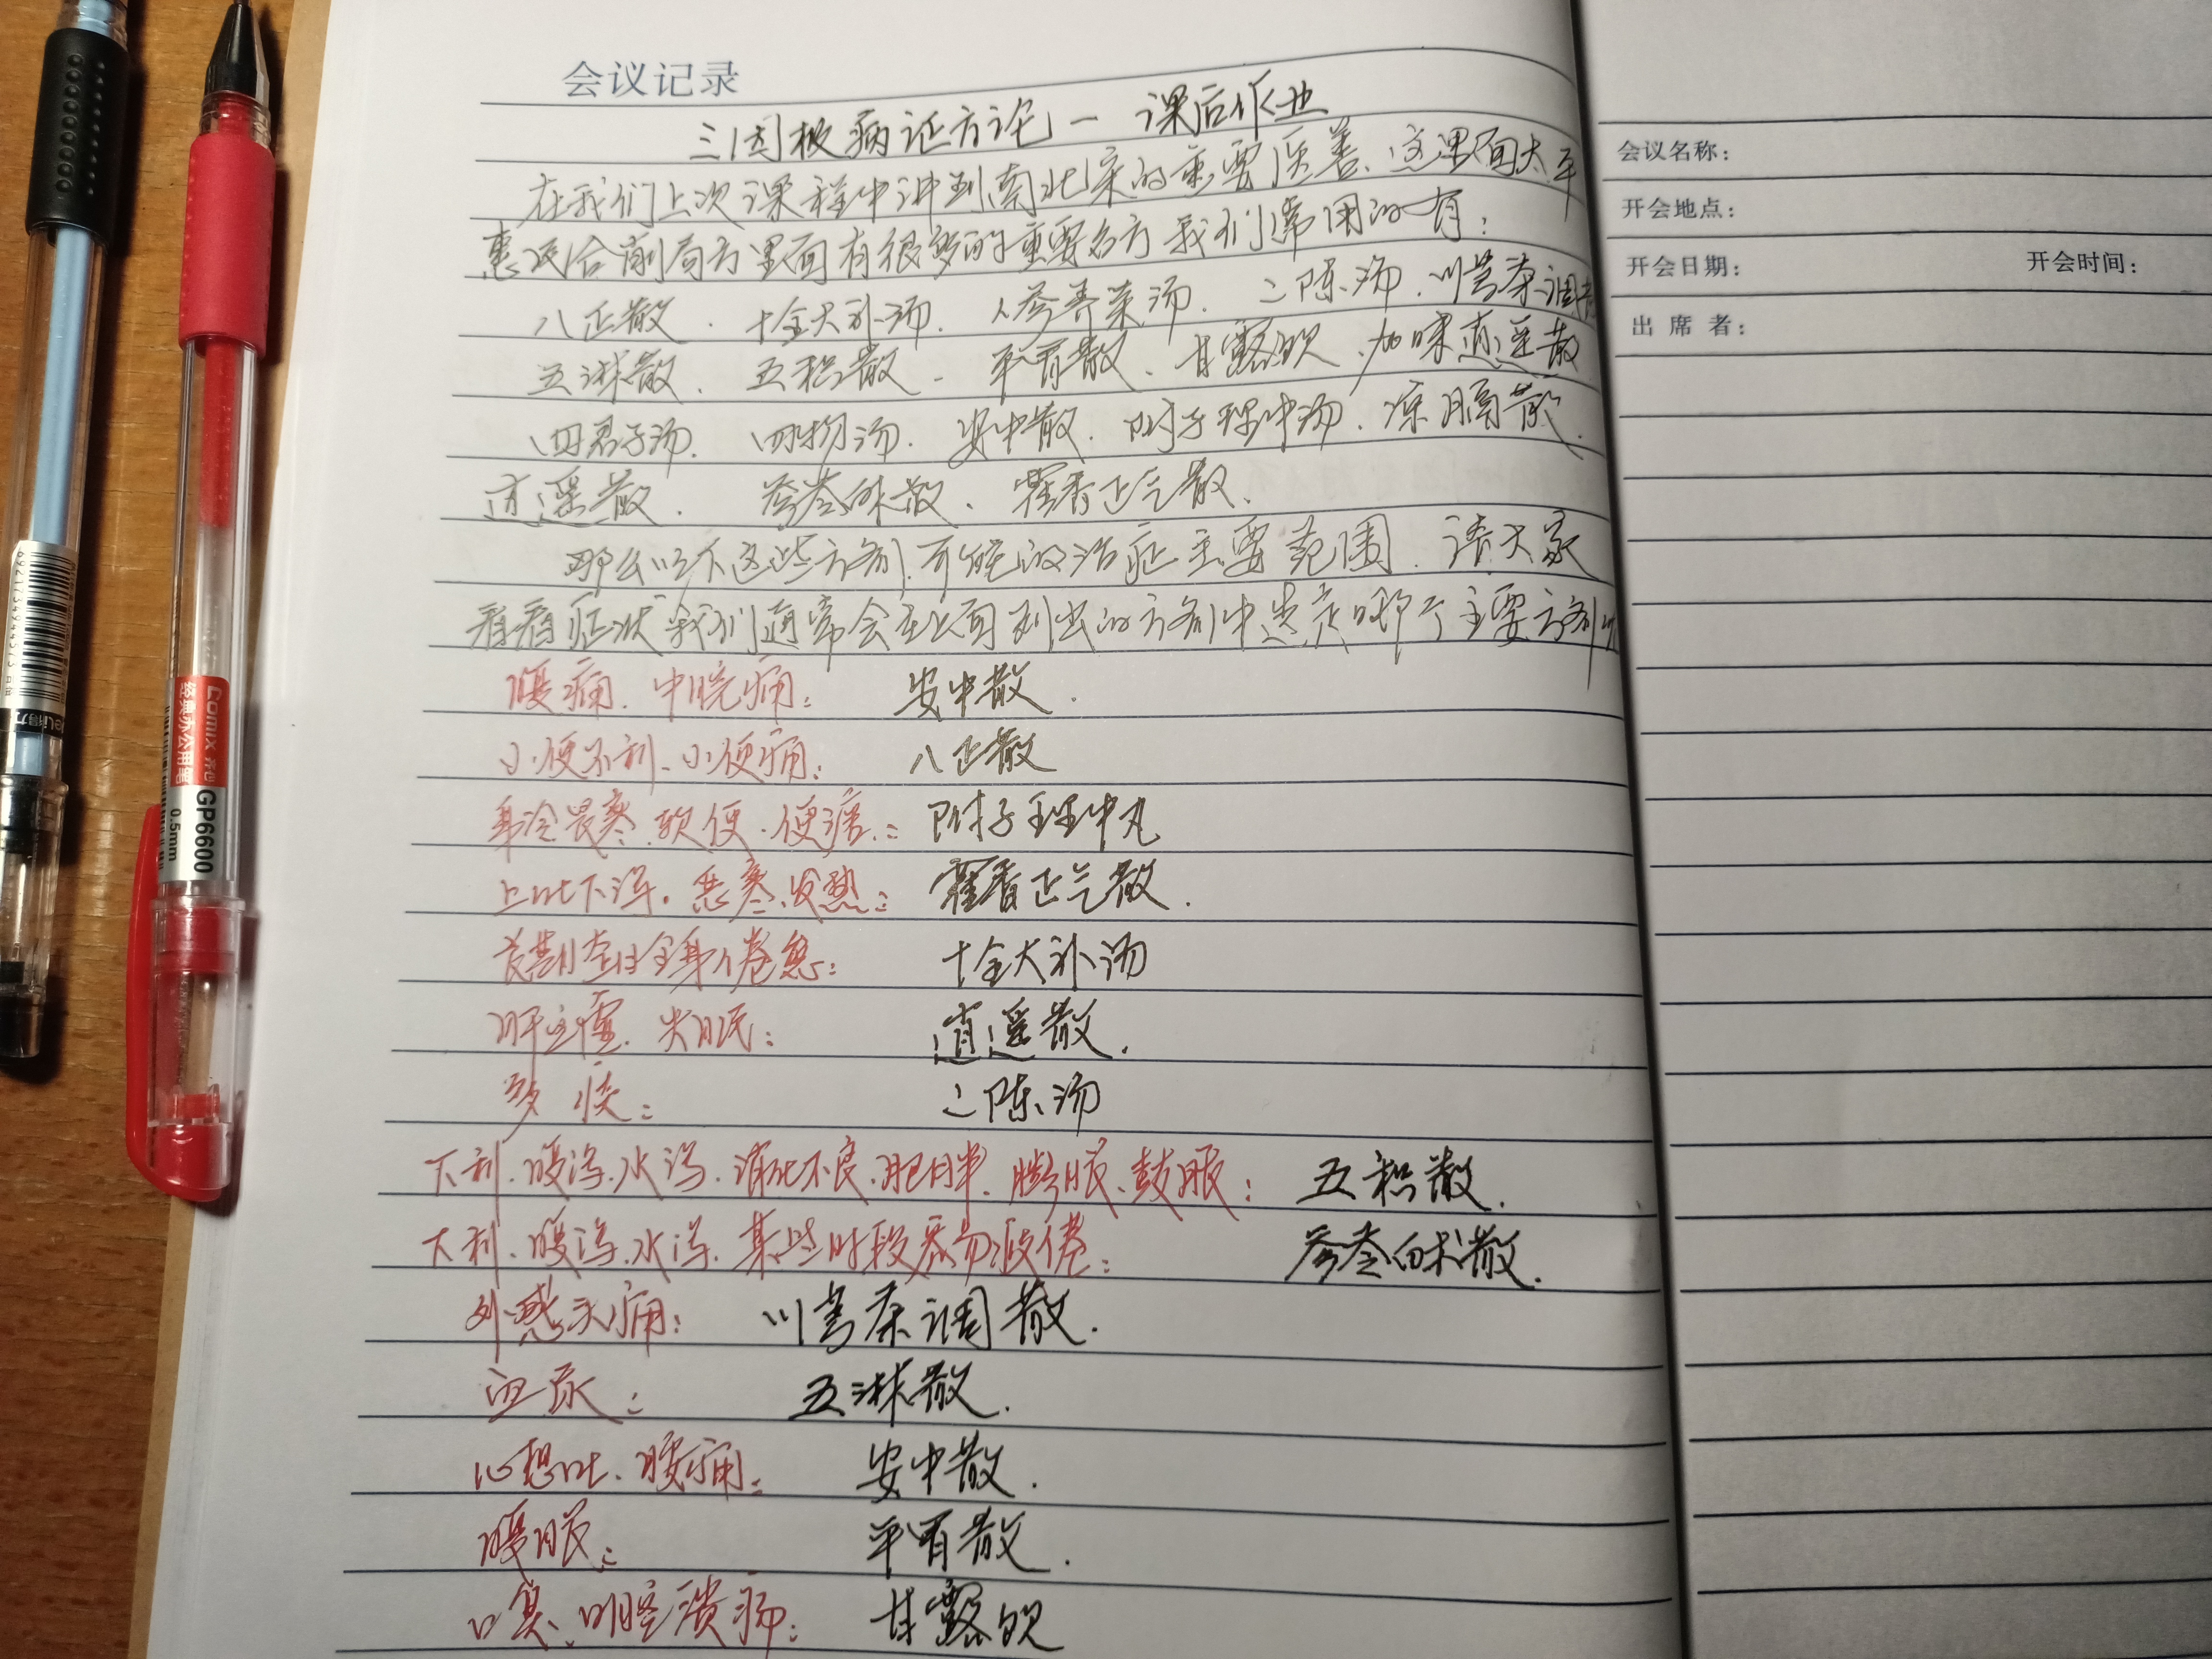 会议记录
三因极病证方论一 课后作业
在我们上次课程中讲到南北宋的重要医善、这里面太平
惠民合剂局方里面有很多的重要名方我们常用的有：
八正散、十全大补汤、人参养荣汤、二陈汤、川芎茶调散
五淋散、五积散、平胃散、甘露饮、加味逍遥散
四君子汤、四物汤、安中散、附子理中汤、凉膈散、
逍遥散、参苓白术散、霍香正气散、
那么以下这些方剂，可能的治症主要范围，请大家
看看症状我们通常会在上面列出的方剂中选定哪个主要方剂
腹痛、中脘痛： 安中散．
小便不利、小便痛： 八正散
身冷畏寒、软便、便溏： 附子理中丸
上吐下泻。恶寒、发热： 霍香正气散．
长期虚性全身倦怠： 十全大补汤
肝血虚、失眠： 逍遥散．
多痰： 二陈汤
下利、腹泻、水泻、消化不良、肥胖、膨胀、鼓胀： 五积散．
下利、腹泻、水泻、某些时段容易疲倦： 参苓白术散．
外感头痛： 川芎茶调散．
血尿： 五淋散．
心想吐、腹痛： 安中散．
腹胀： 平胃散．
口臭、口腔溃疡： 甘露饮
会议名称：
开会地点：
开会日期： 开会时间：
出席者：
Comix 齐心
经典办公用笔
GP6600
0.5mm
deli得力